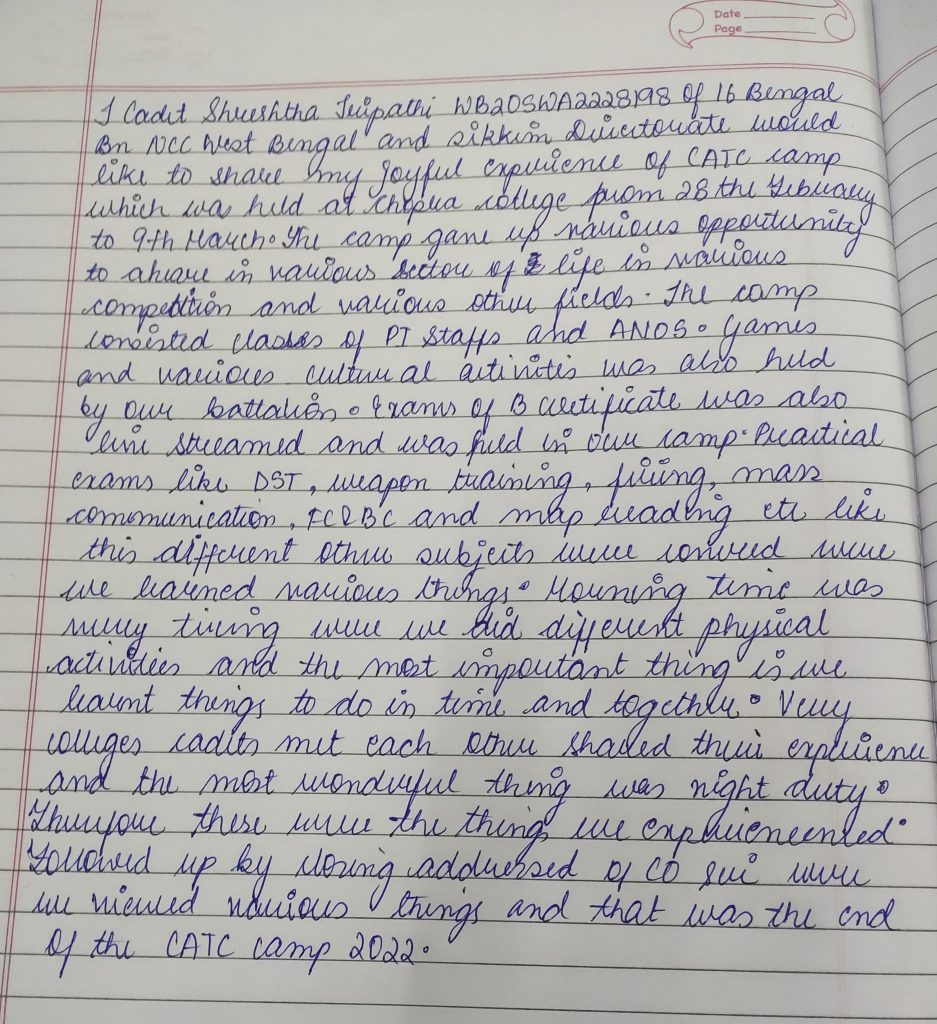 Date
Page
I Cadet Shreshtha Tripathi WB20SWA2228198 Of 16 Bengal
Bn NCC West Bengal and Sikkim Directorate would
like to share my Joyful experience of CATC camp
which was held at college from 28 the February
to 9th March. The camp gave up various opportunity
to in various sector of life in various
competition and various other fields. The camp
consisted classes of PI Staffs and ANOS. Games
and various cultural activities was also held
by our battalion. Exams of B certificate was also
live streamed and was held in our camp. Practical
exams like DST, weapon training, firing, mass
communication, FCRBC and map reading etc like
this different other subjects were covered were
we learned various things. Morning time was
very tiring were we did different physical
activities and the most important thing is we
learnt things to do in time and together. Very
colleges cadets met each other shared their experience
and the most wonderful thing was night duty.
Therefore these were the things we
Followed up by closing addressed of CO sir were
we viewed various things and that was the end
Of the CATC camp 2022.